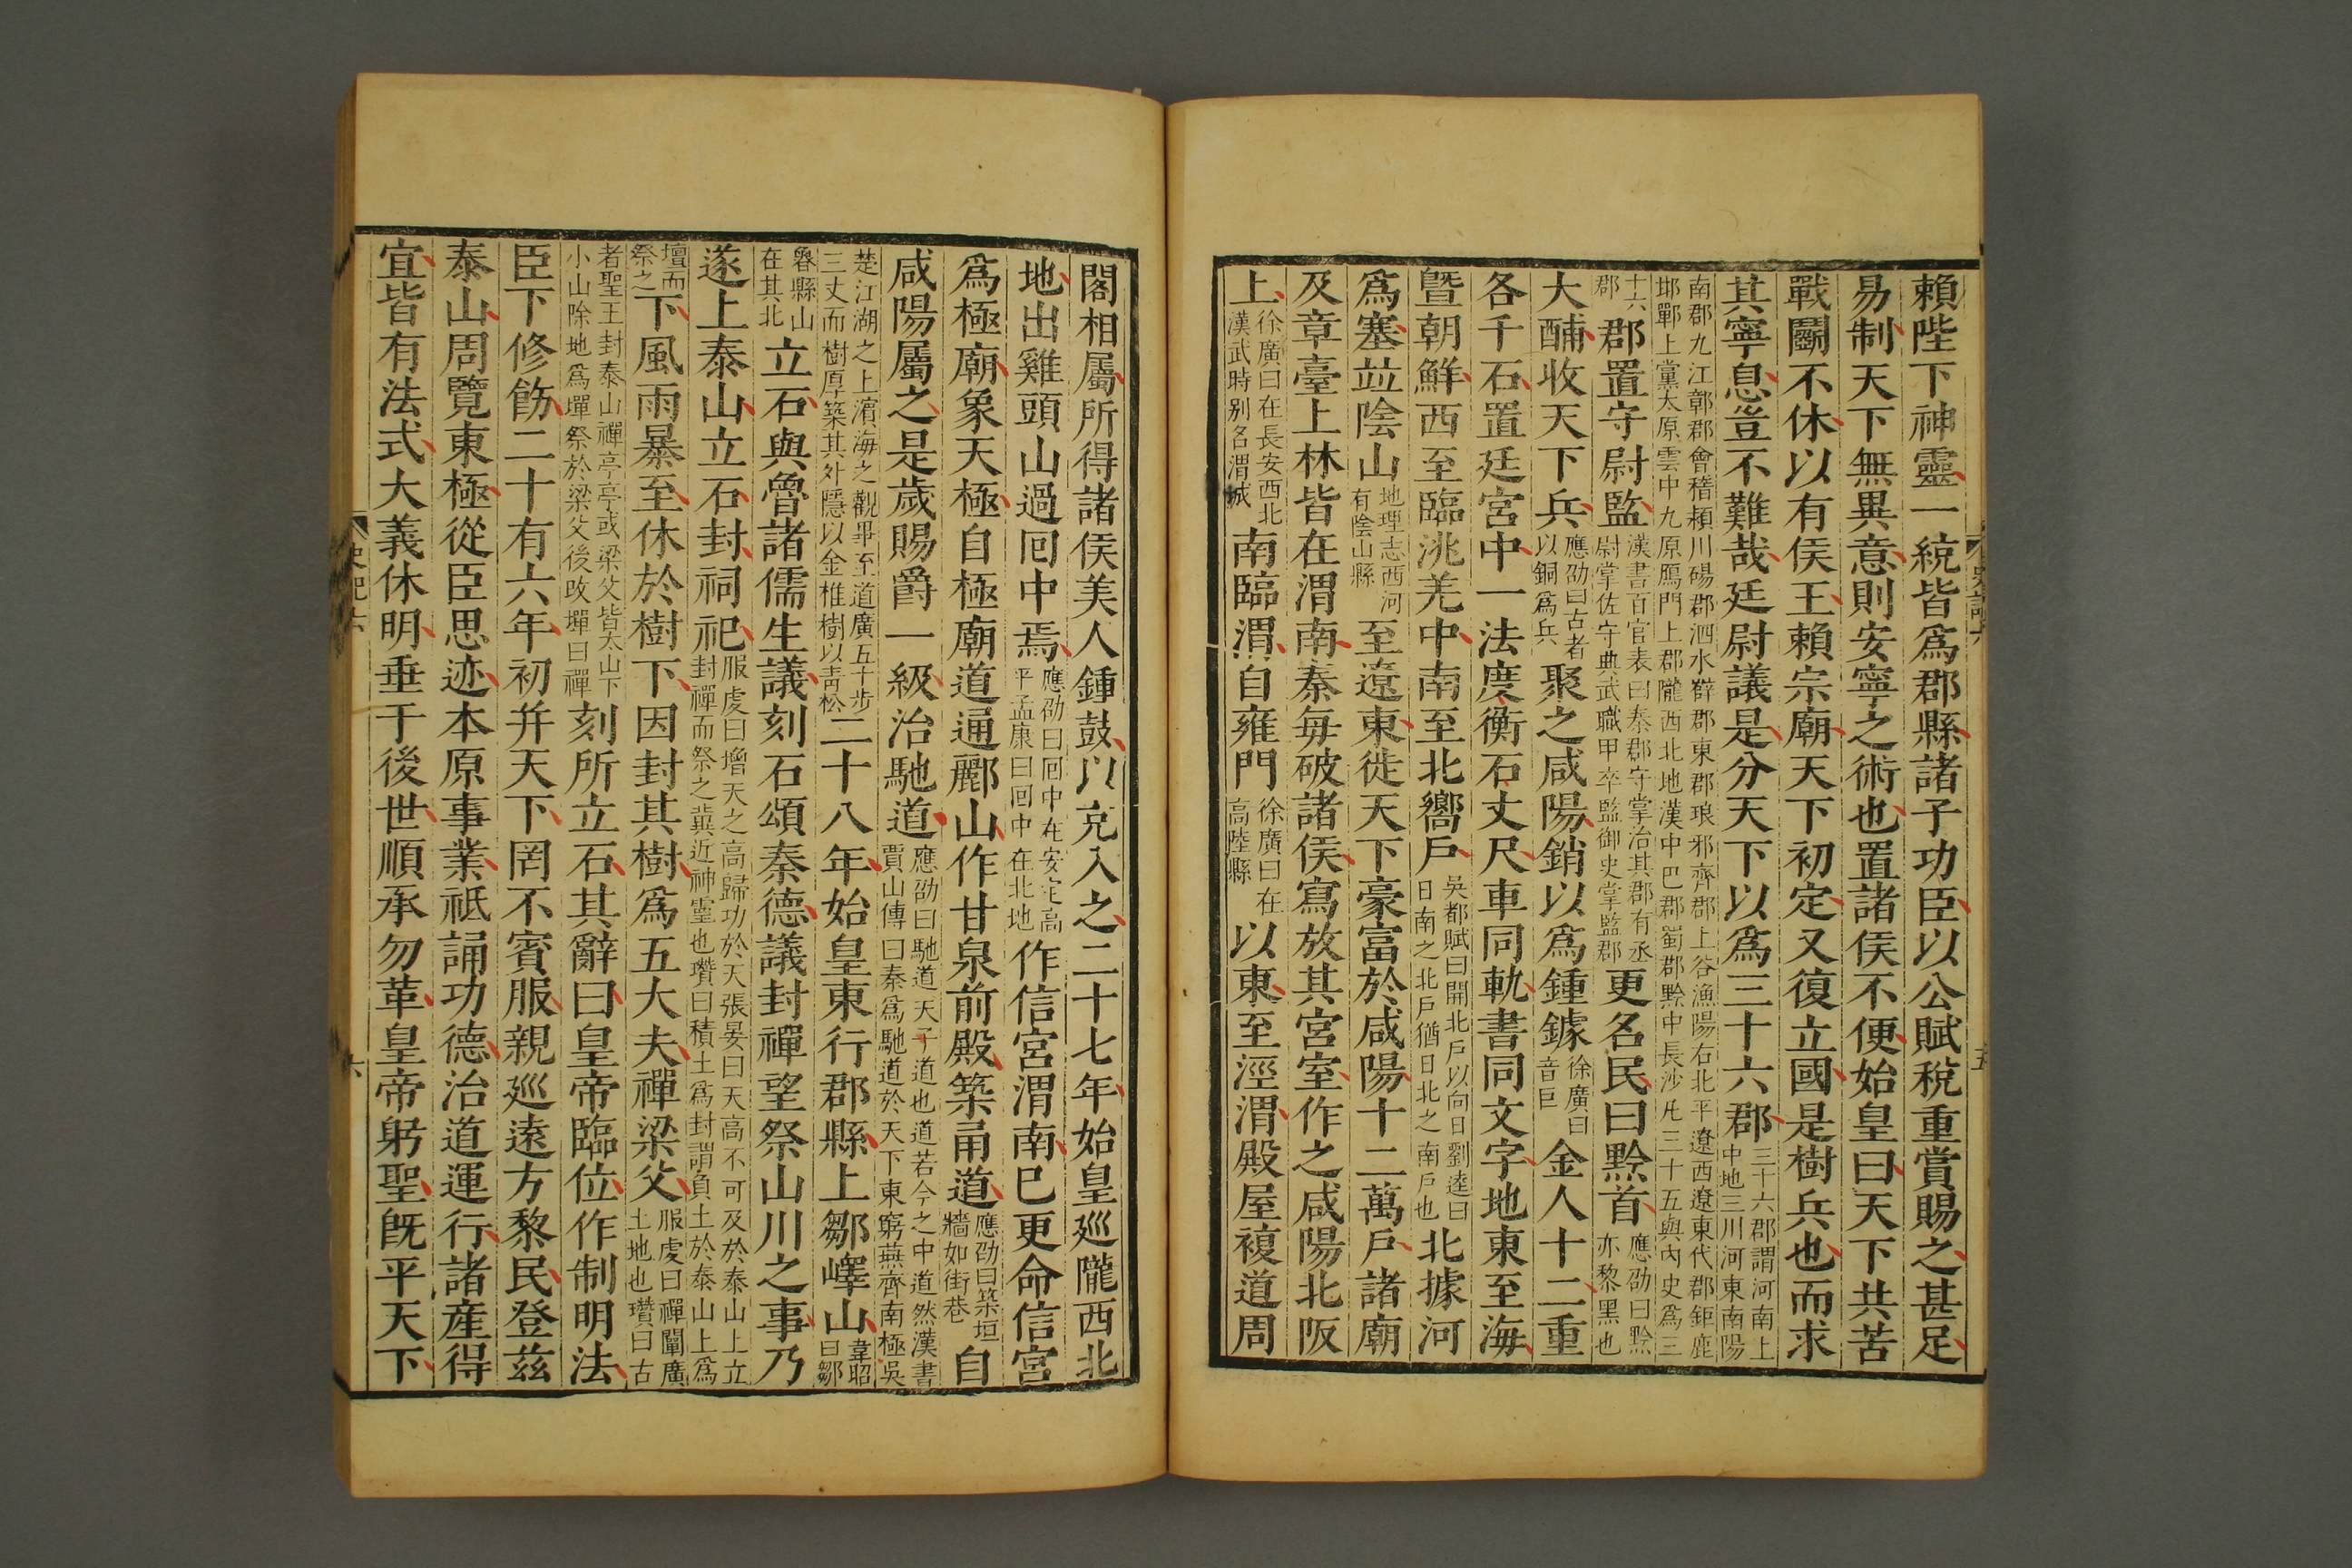 賴陛下神靈一統皆爲郡縣諸子功臣以公賦稅重賞賜之甚足
易制天下無異意則安寧之術也置諸侯不便始皇曰天下共苦
戰鬭不休以有侯王賴宗廟天下初定又復立國是樹兵也而求
其寧息豈不難哉廷尉議是分天下以爲三十六郡三十六郡謂河南上中地三川河東南陽
南郡九江鄣郡會稽頴川碭郡泗水薛郡東郡琅邪齊郡上谷漁陽右北平遼西遼東代郡鉅鹿
邯鄲上黨太原雲中九原鴈門上郡隴西北地漢中巴郡蜀郡黔中長沙凡三十五與內史爲三
十六郡郡置守尉監漢書百官表曰秦郡守掌治其郡有丞尉掌佐守典武職甲卒監御史掌監郡更名民曰黔首應劭曰黔亦黎黑也
大酺收天下兵應劭曰古者以銅爲兵聚之咸陽銷以爲鍾鐻徐廣曰音巨金人十二重
各千石置廷宮中一法度衡石丈尺車同軌書同文字地東至海
曁朝鮮西至臨洮羌中南至北嚮戶吳都賦曰開北戶以向日劉逵曰日南之北戶猶日北之南戶也北據河
爲塞竝陰山地理志西河有陰山縣至遼東徙天下豪富於咸陽十二萬戶諸廟
及章臺上林皆在渭南秦每破諸侯寫放其宮室作之咸陽北阪
上徐廣曰在長安西北漢武時別名渭城南臨渭自雍門徐廣曰在高陸縣以東至涇渭殿屋複道周
閣相屬所得諸侯美人鍾鼓以充入之二十七年始皇巡隴西北
地出雞頭山過回中焉應劭曰回中在安定高平孟康曰回中在北地作信宮渭南巳更命信宮
爲極廟象天極自極廟道通酈山作甘泉前殿築甬道應劭曰築垣牆如街巷自
咸陽屬之是歲賜爵一級治馳道應劭曰馳道天子道也道若今之中道然漢書賈山傳曰秦爲馳道於天下東窮燕齊南極吳
楚江湖之上濱海之觀畢至道廣五十步三丈而樹厚築其外隱以金椎樹以靑松二十八年始皇東行郡縣上鄒嶧山韋昭曰鄒
魯縣山在其北立石與魯諸儒生議刻石頌秦德議封禪望祭山川之事乃
遂上泰山立石封祠祀服虔曰增天之高歸功於天張晏曰天高不可及於泰山上立封禪而祭之冀近神靈也瓚曰積土爲封謂負土於泰山上爲
壇而祭之下風雨暴至休於樹下因封其樹爲五大夫禪梁父服虔曰禪闡廣土地也瓚曰古
者聖王封泰山禪亭亭或梁父皆太山下小山除地爲墠祭於梁父後改墠曰禪刻所立石其辭曰皇帝臨位作制明法
臣下修飭二十有六年初幷天下罔不賓服親巡遠方黎民登茲
泰山周覽東極從臣思迹本原事業祇誦功德治道運行諸產得
宜皆有法式大義休明垂于後世順承勿革皇帝躬聖旣平天下
史紀六
六